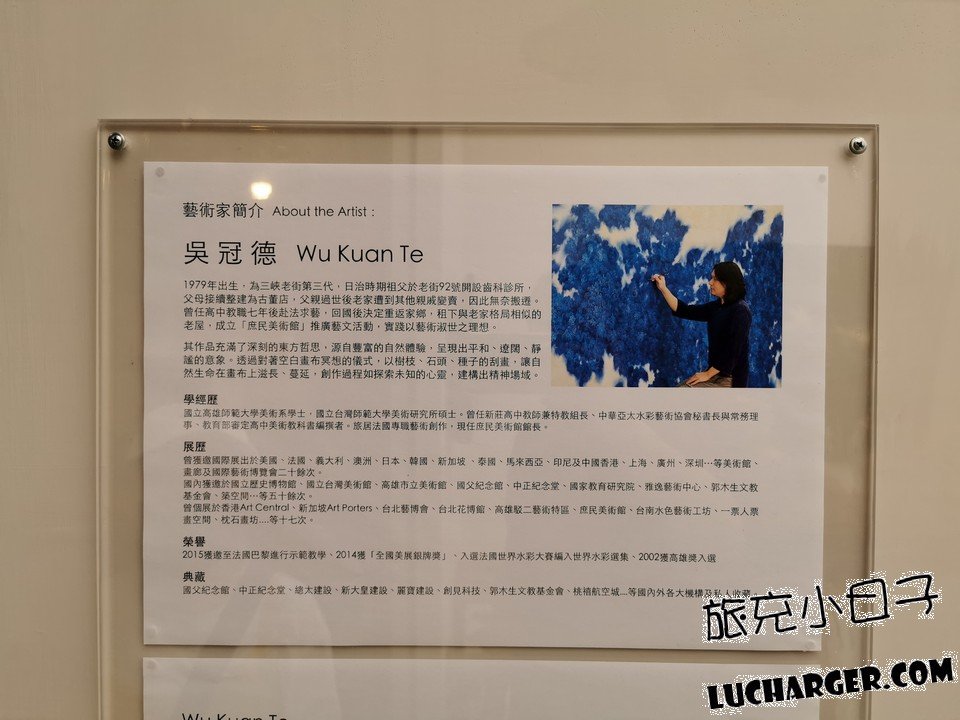 藝術家簡介 About the Artist :
吳冠德 Wu Kuan Te
1979年出生，為三峽老街第三代，日治時期祖父於老街92號開設齒科診所，
父母接續整建為古董店，父親過世後老家遭到其他親戚變賣，因此無奈搬遷。
曾任高中教職七年後赴法求藝，回國後決定重返家鄉，租下與老家格局相似的
老屋，成立「庶民美術館」推廣藝文活動，實踐以藝術淑世之理想。
其作品充滿了深刻的東方哲思，源自豐富的自然體驗，呈現出平和、遼闊、靜
謐的意象。透過對著空白畫布冥想的儀式，以樹枝、石頭、種子的刮畫，讓自
然生命在畫布上滋長、蔓延，創作過程如探索未知的心靈，建構出精神場域。
學經歷
國立高雄師範大學美術系學士，國立台灣師範大學美術研究所碩士。曾任新莊高中教師兼特教組長、中華亞太水彩藝術協會秘書長與常務理
事、教育部審定高中美術教科書編撰者。旅居法國專職藝術創作，現任庶民美術館館長。
展歷
曾獲邀國際展出於美國、法國、義大利、澳洲、日本、韓國、新加坡 、泰國、馬來西亞、印尼及中國香港、上海、廣州、深圳…等美術館、
畫廊及國際藝術博覽會二十餘次。
國內獲邀於國立歷史博物館、國立台灣美術館、高雄市立美術館、國父紀念館、中正紀念堂、國家教育研究院、雅逸藝術中心、郭木生文教
基金會、築空間…等五十餘次。
曾個展於香港Art Central、新加坡Art Porters、台北藝博會、台北花博館、高雄駁二藝術特區、庶民美術館、台南水色藝術工坊、一票人票
畫空間、枕石畫坊....等十七次。
榮譽
2015獲邀至法國巴黎進行示範教學、2014獲「全國美展銀牌獎」、入選法國世界水彩大賽編入世界水彩選集、2002獲高雄獎入選
典藏
國父紀念館、中正紀念堂、總太建設、新大皇建設、麗寶建設、創見科技、郭木生文教基金會、桃禧航空城...等國內外各大機構及私人收藏。
旅充小日子
LUCHARGER.COM
Wu Kuan Te